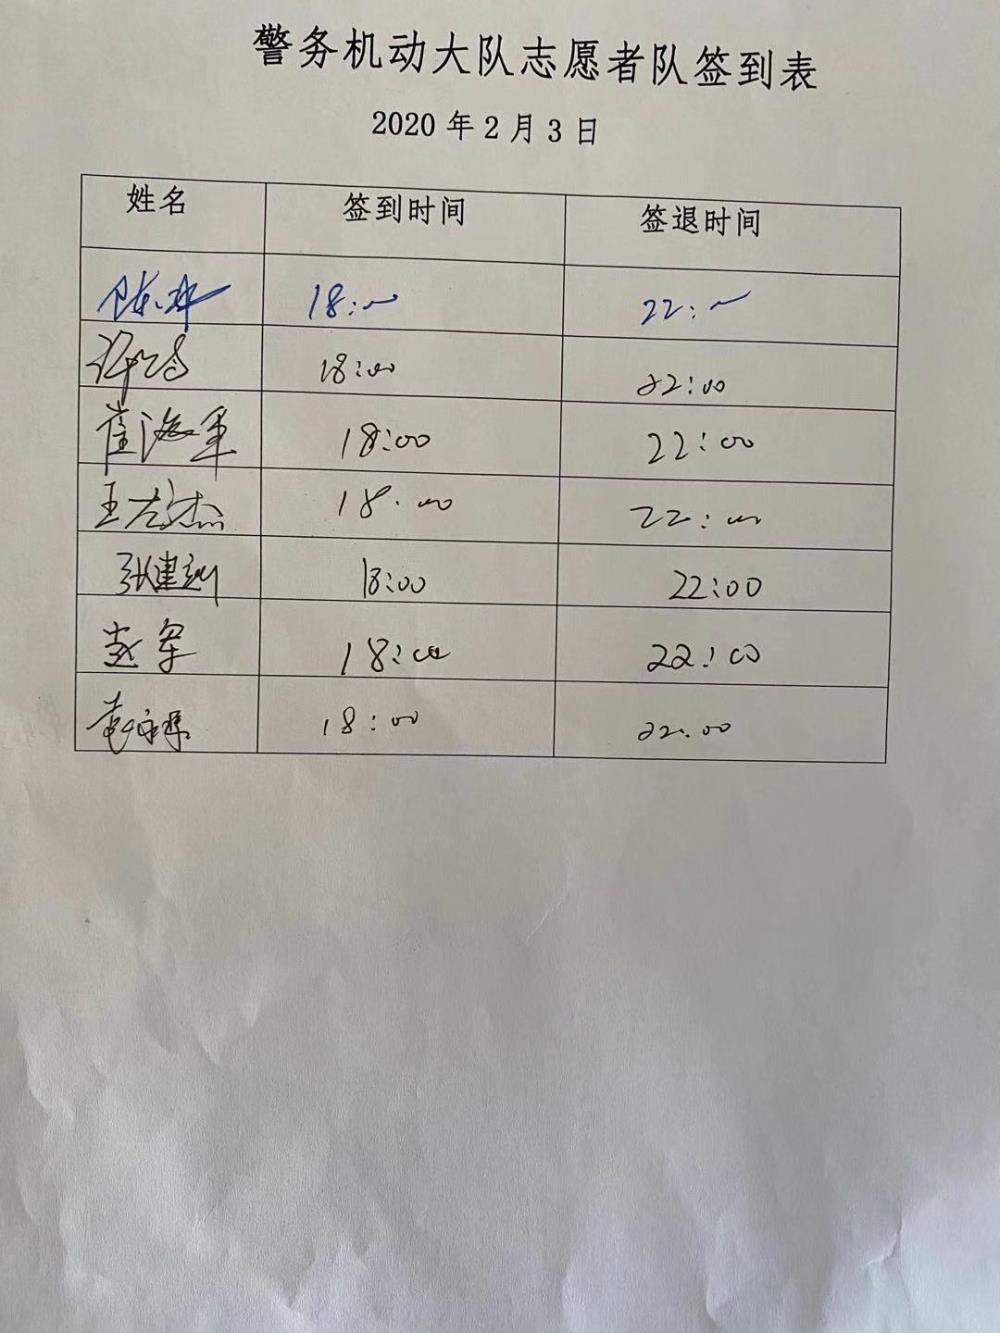 警务机动大队志愿者队签到表
2020年2月3日
姓名 签到时间 签退时间
陈 18:00 22:00
许 18:00 22:00
崔海军 18:00 22:00
王 杰 18:00 22:00
张建 18:00 22:00
赵军 18:00 22:00
18:00 22:00